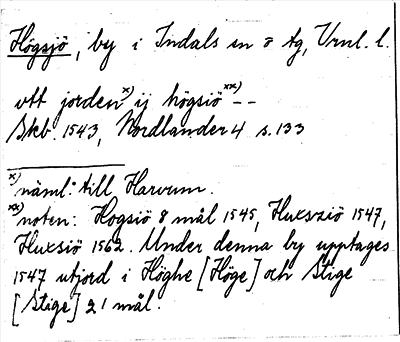 Högsjö, by i Indals sn o tg, Vrnl. l.
vtt jorden x) ij högsiö xx) --
Skb. 1543, Nordlander 4 s. 133
x) näml: till Harvum.
xx) noten: Hogsiö 8 mål 1545, Huxsziö 1547,
Huxsiö 1562. Under denna by upptages
1547 utjord i Höghe [Höge] och Stige
[Stige] 2 1 mål.